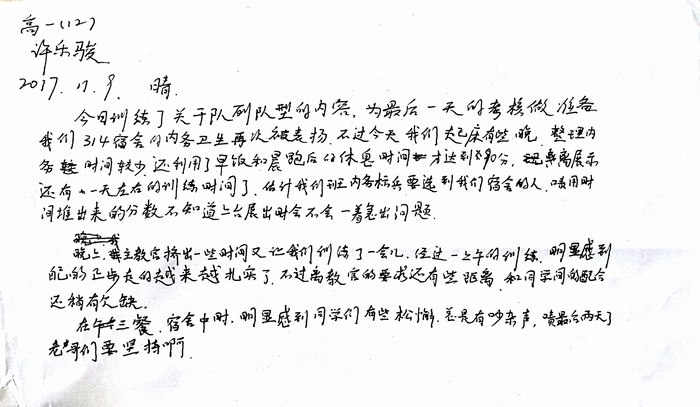 高一(12)
许乐骏
2017.11.9. 晴.
今日训练了关于队列队型的内容,为最后一天的考核做准备
我们314宿舍的内务卫生再次被表扬.不过今天我们起床有些晚.整理内
务 时间较少还利用了早饭和晨跑后的休息时间 才达到 90分, 离展示
还有 一天左右的训练时间了,估计我们班内务标兵要选到我们宿舍的人,唔用时
间堆出来的分数不知道上台展出时会不会一着急出问题.
晚上, 教官挤出一些时间又让我们训练了一会儿.经过一上午的训练.明显感到
自己的正步走的越来越扎实了.不过离教官的要求还有些距离,和同学间的配合
还稍有欠缺.
在午 三餐.宿舍中时.明显感到同学们有些松懈.总是有吵杂声,啧最后两天了
老哥们要坚持啊.